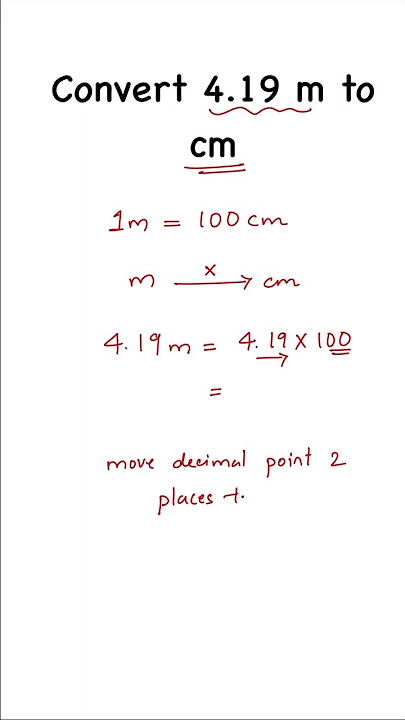 Convert 4.19 m to
cm
1m = 100 cm
m × → cm
4.19 m = 4.19 × 100
=
move decimal point 2
places t